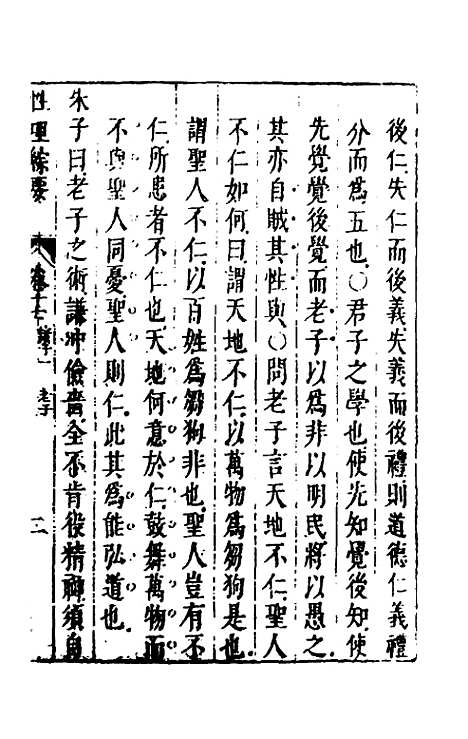 後仁失仁而後義失義而後禮則道德仁義禮
分而為五也○君子之學也使先知覺後知使
先覺覺後覺而老子以為非以明民將以愚之
其亦自賊其性與○問老子言天地不仁聖人
不仁如何曰謂天地不仁以萬物為芻狗是也
謂聖人不仁以百姓為芻狗非也聖人豈有不
仁所患者不仁也天地何意於仁鼓舞萬物而
不與聖人同憂聖人則仁此其為能弘道也
朱子曰老子之術謙沖儉嗇全不肯役精神須自
性理綜要 卷十七 老子 二